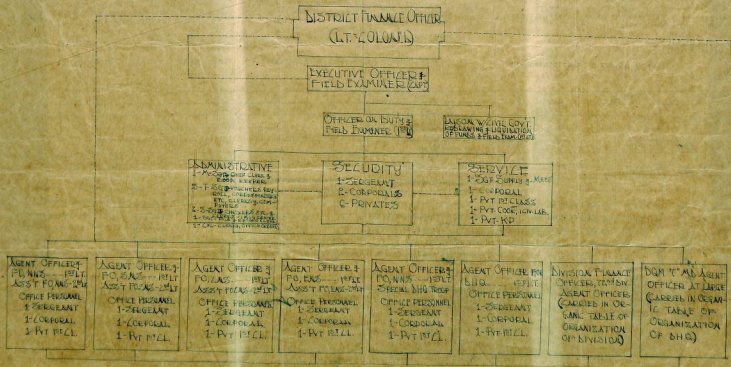 DISTRICT FINANCE OFFICER
(LT. COLONEL)
EXECUTIVE OFFICER &
FIELD EXAMINER (CAPT)
OFFICER ON DUTY &
FIELD EXAMINER (1st LT)
LIAISON W/CIVIL GOVT.
DRAWING & LIQUIDATION
OF FUNDS & FIELD EXAM.
ADMINISTRATIVE
1-M/SGT CHIEF CLERK &
BOOK KEEPER
ETC, CLERKS & COM-
PUTERS
SECUDITY
1-SERGEANT
2-CORPORALS
6-PRIVATES
SERVICE
1-SGT SUPPLY & MESS
1-CORPORAL
1-PVT 1st CLASS
1-PVT. COOK,
1-PVT. KP
AGENT OFFICER &
FO, NNS --- 1st LT
ASS'T FO, NNS-2nd Lt
OFFICE PERSONNEL
1-SERGEANT
1-CORPORAL
1-PVT 1st CL.
AGENT OFFICER &
FO, SNS --- 1st LT.
ASS'T FO, SNS-2nd Lt
OFFICE PERSONNEL
1-SERGEANT
1-CORPORAL
1-PVT 1st CL.
AGENT OFFICER &
1st LT
OFFICE PERSONNEL
1-SERGEANT
1-CORPORAL
1-PVT 1st CL.
AGENT OFFICER &
1st LT
OFFICE PERSONNEL
1-SERGEANT
1-CORPORAL
1-PVT 1st CL.
AGENT OFFICER &
FO, NNS --- 1st LT
SPECIAL DHQ TROOP
OFFICE PERSONNEL
1-SERGEANT
1-CORPORAL
1-PVT 1st CL.
AGENT OFFICER FOR
DHQ --- 1st LT
OFFICE PERSONNEL
1-SERGEANT
1-CORPORAL
1-PVT 1st CL.
DIVISION FINANCE
OFFICER, 72nd DIV
AGENT OFFICER
(CARRIED IN OR-
GANIC TABLE OF
ORGANIZATION
OF DIVISION)
DQM "C" MD AGENT
OFFICER AT LARGE
(CARRIED IN ORGAN-
IC TABLE OF
ORGANIZATION
OF DHQ)